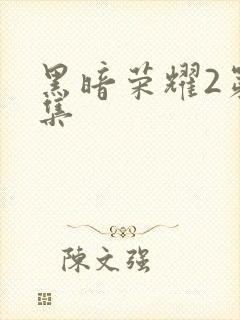 黑暗荣耀2第
集
陈文强